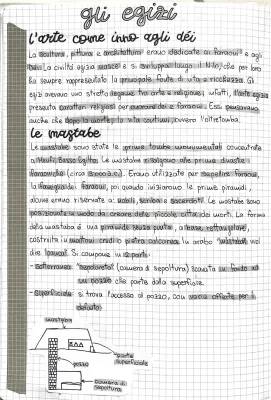 gli egizi
l'arte come inno agli dèi
La scultura, pittura e architettura erano dedicate ai faraoni e agli
Dei. La civiltà egizia nasce e si sviluppa lungo il Nilo, che per loro
ha sempre rappresentato la principale fonte di vita e ricchezza. Gli
egizi avevano uno stretto legame tra arte e religione; infatti, l'arte egizia
presenta caratteri religiosi per onorare dei e faraoni. Essi pensavano
anche che dopo la morte, la vita continui, ovvero l'oltretomba.
le mastabe
Le mastabe sono state le prime tombe monumentali concentrate
a Menfi, Basso Egitto. Le mastabe risalgono alle prime dinastie
faraoniche (circa a.C.). Erano utilizzate per seppellire faraoni,
la famiglia dei faraoni, poi quando iniziarono le prime piramidi,
alcune erano riservate a: nobili, scribi e sacerdoti. Le mastabe sono
posizionate in modo da creare delle piccole città dei morti. La forma
della mastaba è una piramide senza punta, a base rettangolare,
costruita in mattoni crudi o pietra calcarea. In arabo "mastaba" vuol
dire "panca". Si compone in 2 parti:
- sotterranea: "sepolcreto" (camera di sepoltura) scavata in fondo ad
un pozzo che parte dalla superficie.
- superficiale: si trova l'accesso al pozzo, con varie offerte per il
defunto.
mastaba
parte
superficiale
pozzo
camera di
sepoltura